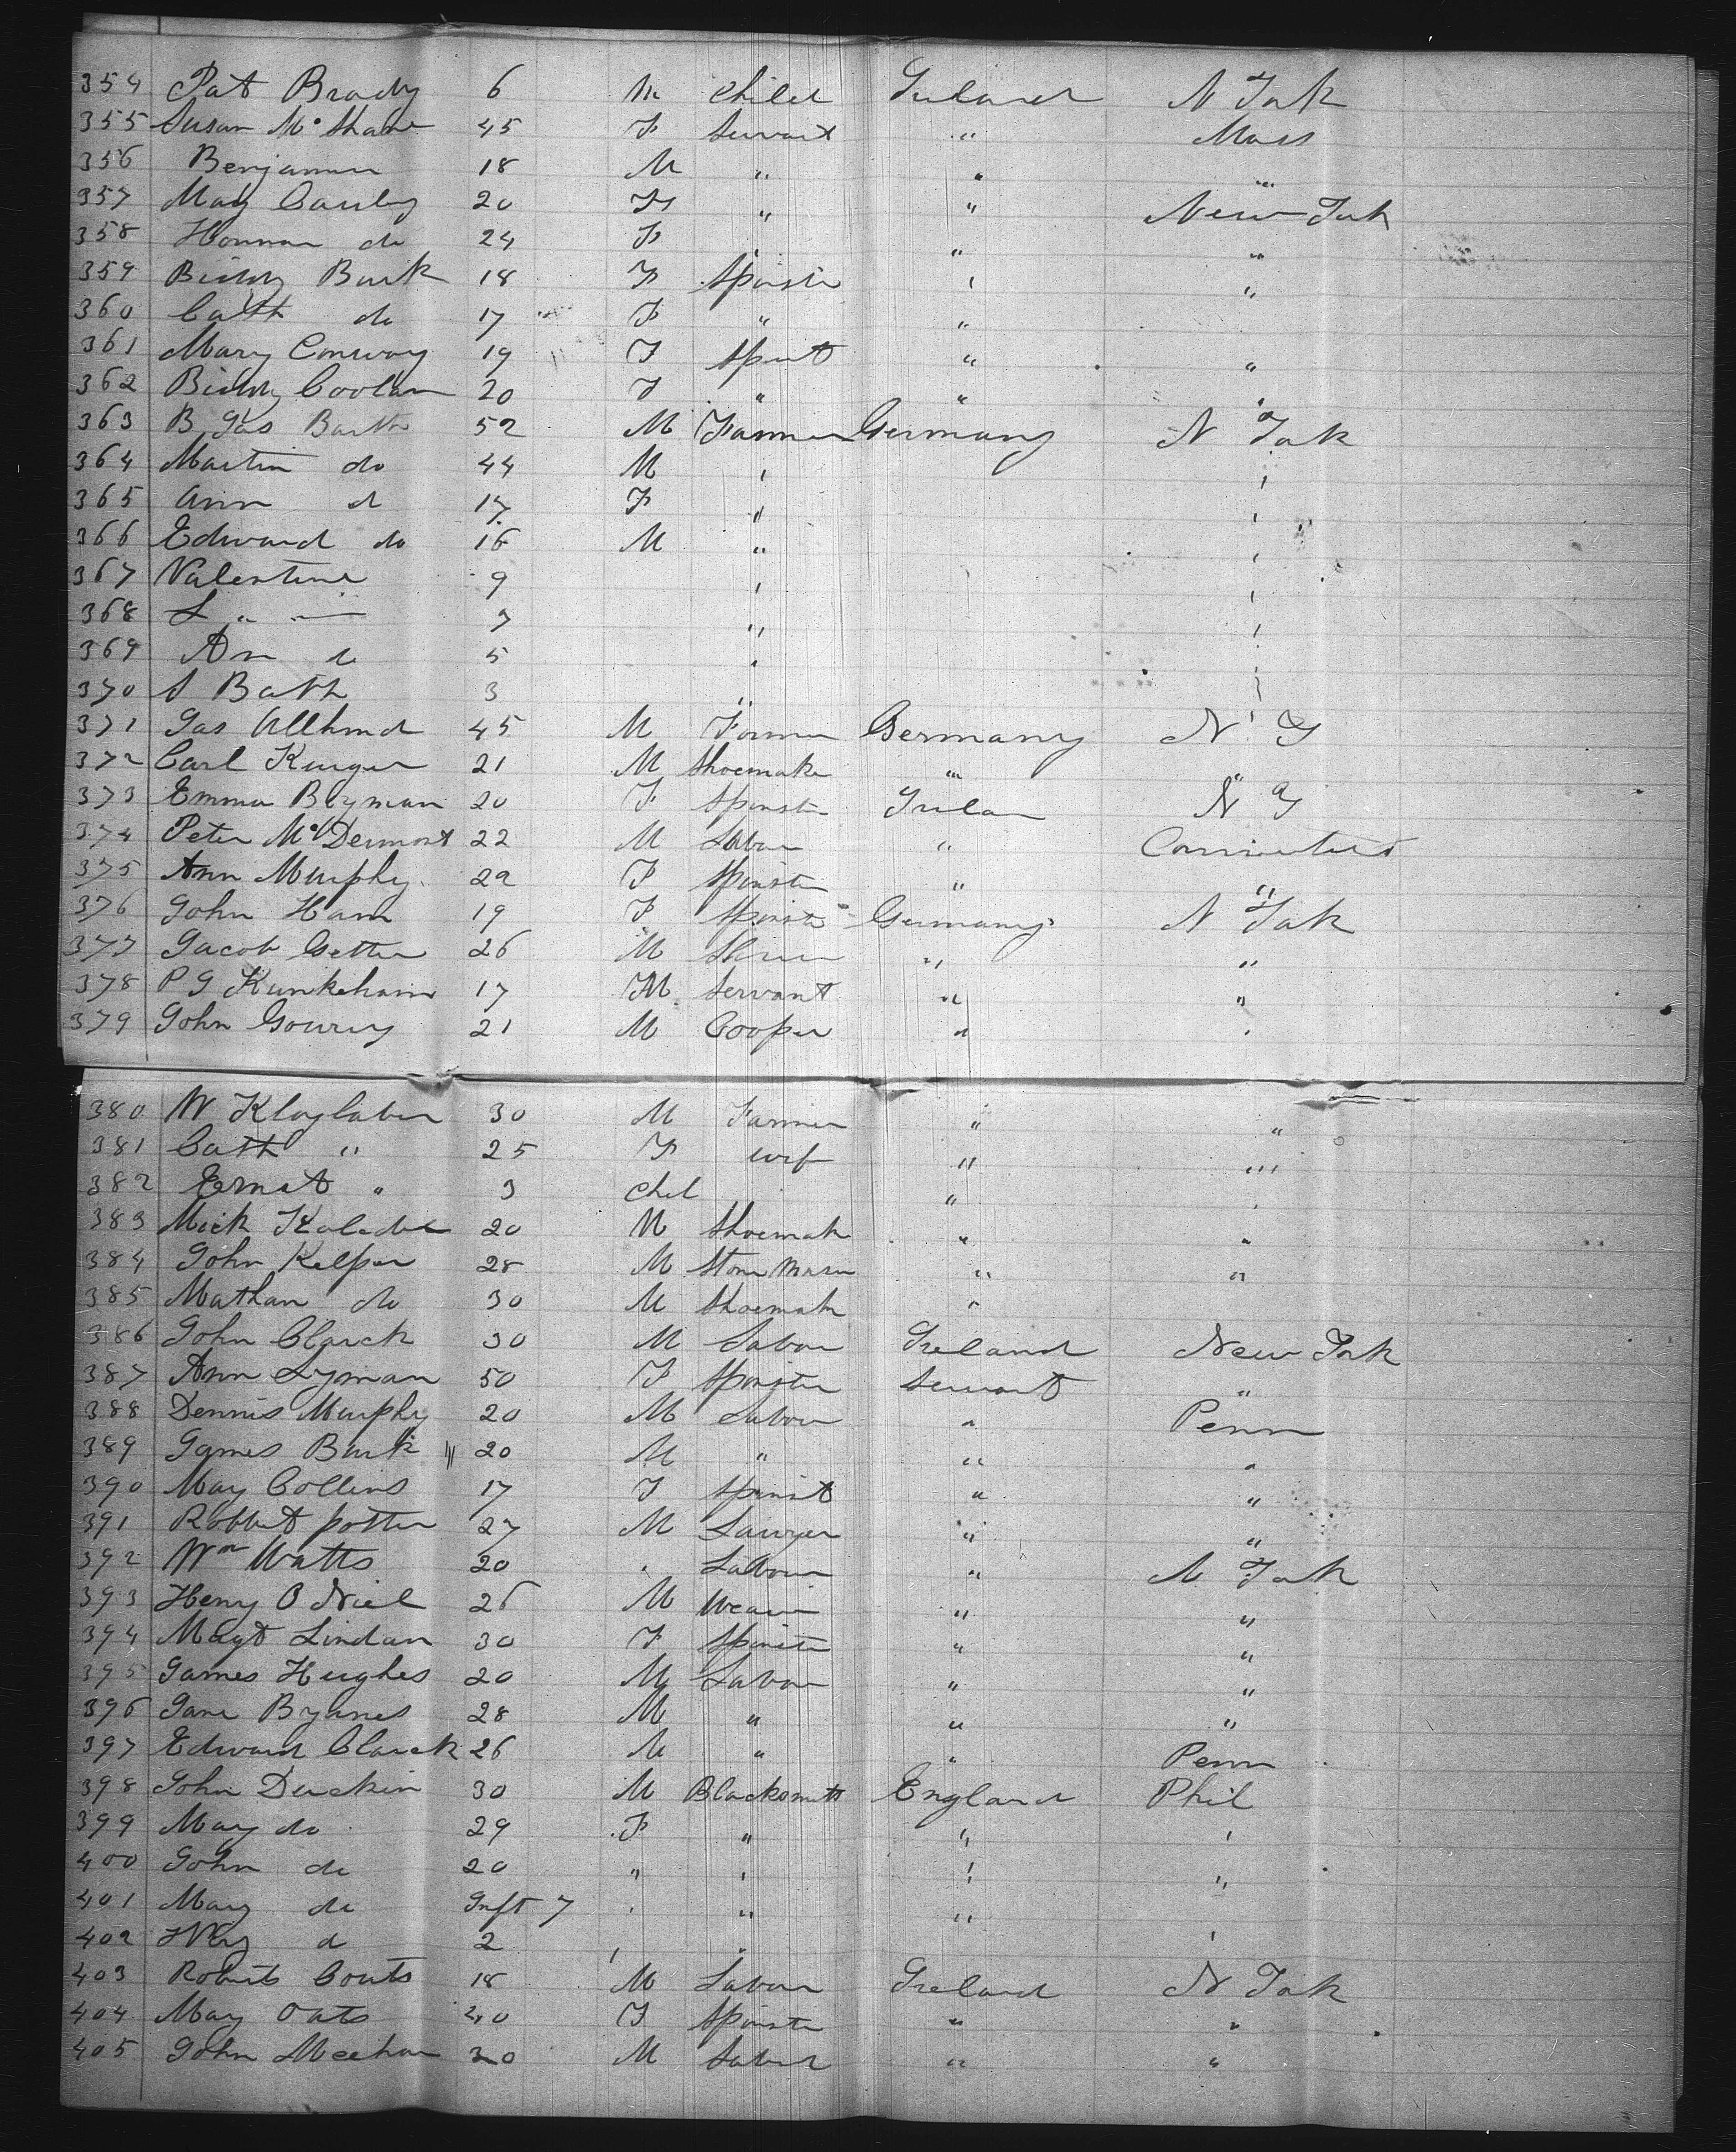 354 Pat Brady 6 M Child Ireland N York
355 Susan McShane 45 F Servant " Mass
356 Benjamin 18 M " " "
357 May Cauley 20 F " " New York
358 Honnan do 24 F " " "
359 Biddy Burk 18 F Spinster " "
360 Cath do 17 F " "
361 Mary Conway 19 F Spinst " "
362 Biddy Coolan 20 F " " "
363 B Jas Barth 52 M Farmer Germany N York
364 Martin do 44 M " "
365 Ann d 17 F " "
366 Edward do 16 M " "
367 Valentine 9 " "
368 L " — 7 " "
369 An do 5 " "
370 S Bath 3 " "
371 Jas Allhmd 45 M Farmer Germany N Y
372 Carl Kruger 21 M Shoemake " "
373 Emma Byman 20 F Spinster Irelan N Y
374 Peter McDermort 22 M Labour " Connecticut
375 Ann Murphy 22 F Spinster " "
376 John Ham 19 F Spinste Germany N York
377 Jacob Getter 26 M " "
378 P J Kunkeham 17 M Servant " "
379 John Goury 21 M Cooper " "
380 W Klaglaber 30 M Farmer " "
381 Cath " 25 F wif " "
382 Ernst " 3 Chil " "
383 Mick 20 M Shoemak " "
384 John Kelper 28 M Stone Mason " "
385 Mathan do 30 M Shoemak "
386 John Clarck 30 M Labour Ireland New York
387 Ann Lyman 50 F Spinster Servant "
388 Dennis Murphy 20 M Labour " Penn
389 James Burk 20 M " " "
390 May Collins 17 F Spinst " "
391 Robbert potter 27 M Lawyer " "
392 Wm Watts 20 " Labour " N York
393 Henry O Niel 26 M Weaver " "
394 Magt Lindan 30 F Spinster " "
395 James Hughes 20 M Labour " "
396 Jane Byrnes 28 M " " "
397 Edward Clarck 26 M " " Penn
398 John Duckin 30 M Blacksmith England Phil
399 May do 29 F " " "
400 John do 20 " " " "
401 May do Inft 7 " " "
402 d 2 " " "
403 Robert Couts 18 M Labour Ireland N York
404 May Oats 40 F Spinster " "
405 John Meehan 30 M Labour " "